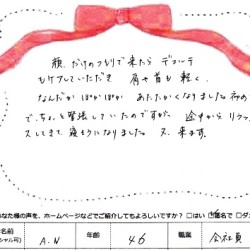 顔だけのつもりで来たら デコルテ
もケアしていただき 肩や首も軽く、
なんだか ぽかぽか あたたかくなりました。初め
で、ちょっと緊張していたのですが、途中からリラック
スしてきて寝そうになりました。又、来ます。
なた様の声を、ホームページなどでご紹介してもよろしいですか？ □はい ☑匿名で □ダ
名前
シャル可)
A.N
年齢
46
職業
会社員